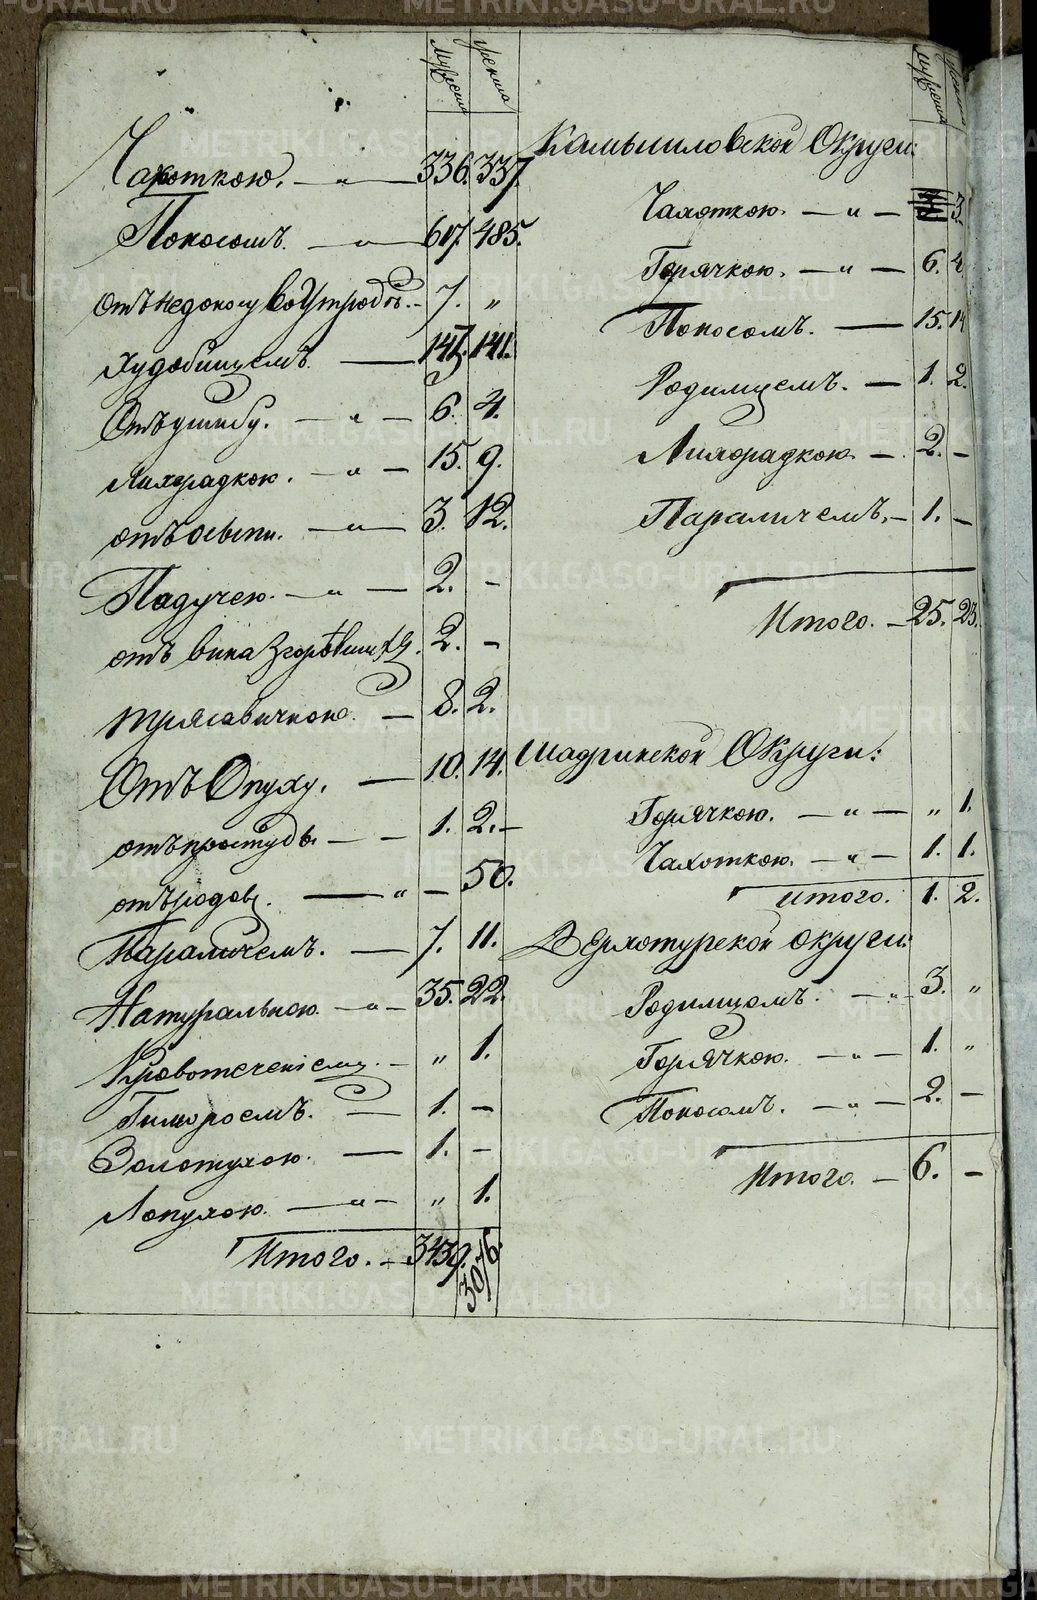 мужеска женска
Чахоткою. — „ — 336. 337.
Поносомъ. — „ — 617. 485.
отъ недоносу во Утробѣ. - 7. „
худобищемъ — 147. 141.
Отъ ушибу. — „ — 6. 4.
Лихорадкою. — „ — 15. 9.
отъ оспы. — „ — 3. 12.
Падучею. — „ — 2. -
отъ вина згорѣвших. 2. -
трясавичною. — 8. 2.
Отъ Опуху. — 10. 14.
отъ простуды — — 1. 2. -
отъ родовъ. — „ — 50.
Параличемъ. — 7. 11.
Натуральною — „ — 35. 22.
Кровотеченіемъ. — „ 1.
— 1. —
Золотухою. — 1. —
Лопухою. — „ — „ 1.
Итого. — 3439. 3076.
мужеска женска
Камышловской Округи:
Чахоткою. — „ — 3.
Горячкою. — „ — 6. 4
Поносомъ. — 15. 14
Родимцемъ. — 1. 2.
Лихорадкою. — 2. —
Параличемъ. — 1. —
Итого. — 25. 23.
Шадринской Округи:
Горячкою. — „ — „ 1.
Чахоткою. — „ — 1. 1.
итого. 1. 2.
Верхотурской округи:
Родимцомъ. — „ - 3. „
Горячкою. — „ — 1. „
Поносомъ. — „ — 2. —
Итого. — 6. —
METRIKI.GASO-URAL.RU